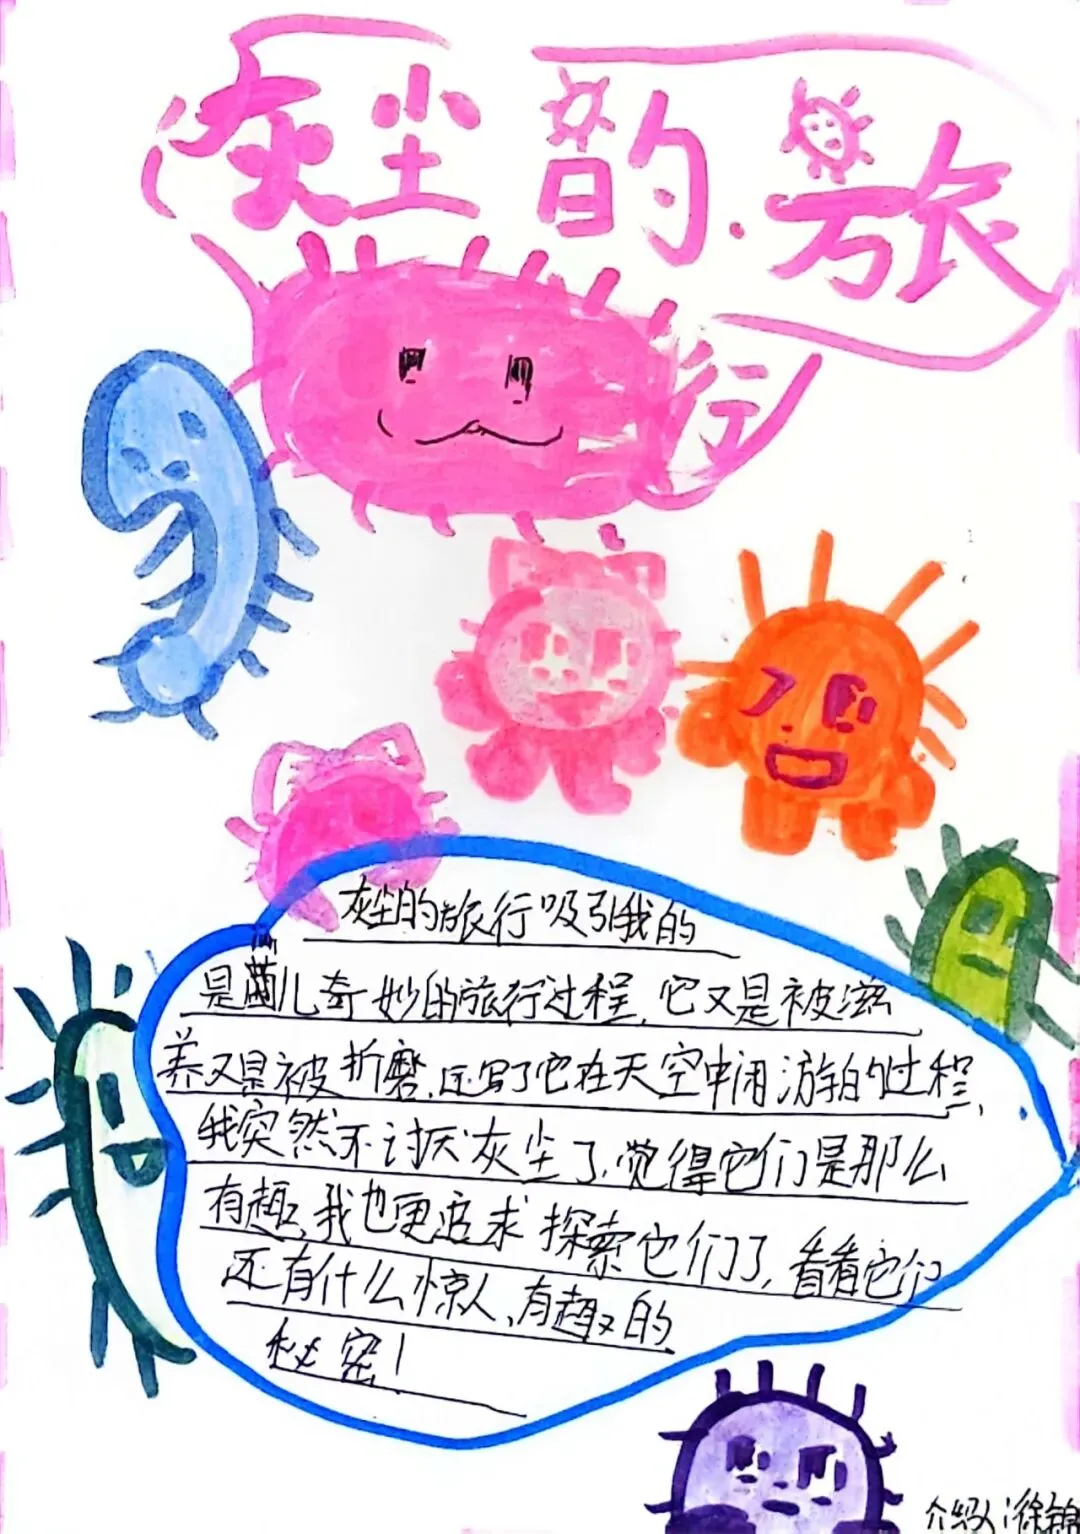 灰尘的旅
行
灰尘的旅行吸引我的
是菌儿奇妙的旅行过程,它又是被滋
养又是被折磨,还写了它在天空中闲游的过程,
我突然不讨厌灰尘了,觉得它们是那么
有趣,我也更追求探索它们了,看看它们
还有什么惊人、有趣的
秘密!
介绍人:徐锦